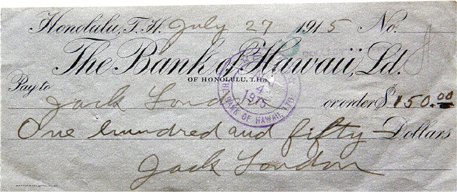 Honolulu, T.H. July 27 1915 No.
The Bank of Hawaii, Ltd.
OF HONOLULU, T.H.
Pay to Jack London or order $150.00
1915
BANK OF HAWAII, LTD.
One hundred and fifty Dollars
Jack London